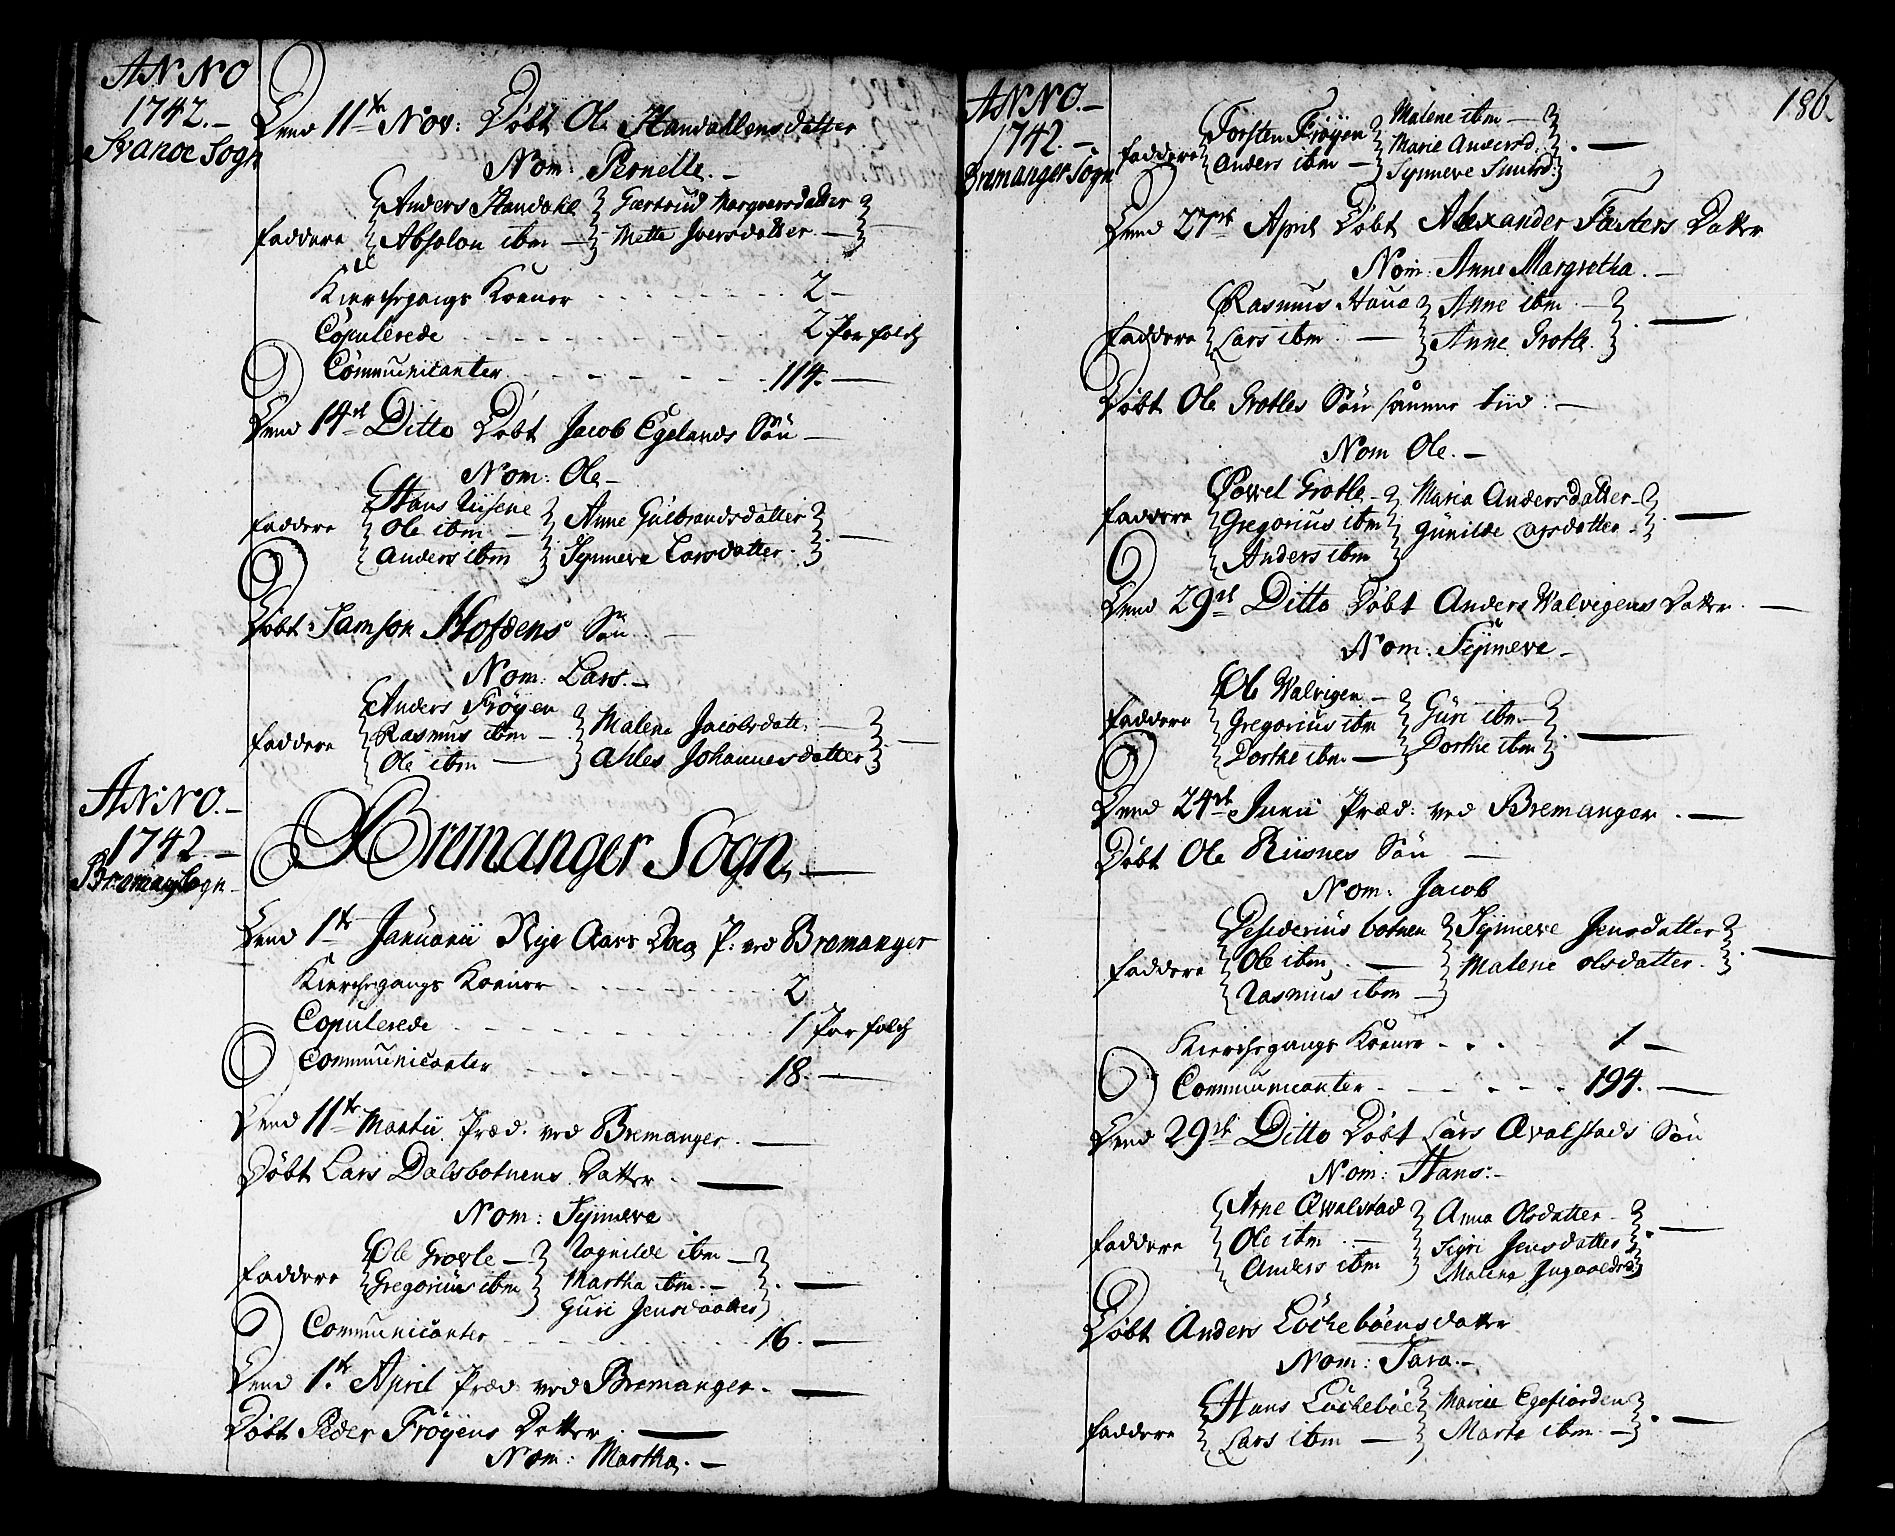 ANNO
1742.-
Svanoe Sogn
Dend 11te Nov: Döbt Ole Standahlens datter
Nom: Pernelle.-
Faddere
Anders Standahl
Absolon ibm -
Gertrud Margversdatter
Mette Iversdatter.-
Kierchegangs Koener 2-
Copulerede 2 Par folch
Communicanter 114.-
Dend 14de Ditto Döbt Jacob Egelands Sön -
Nom: Ole-
Faddere
Hans
Ole ibm -
Anders ibm
Anne Gulbrandsdatter
Synneve Larsdatter.
Döbt Samson Hofdens Sön -
Nom: Lars.-
Faddere
Anders Fröyen
Rasmus ibm -
Ole ibm -
Malene Jacobsdatt. -
Ahles Johannesdatter
ANNO.-
1742.-
Bremang Sogn-
Bremanger Sogn.-
Dend 1te Januarii Nye Aars Dag P: ved Bremanger
Kierchegangs Koener 2
Copulerede 1 Par folch
Communicanter 18.-
Dend 11te Martii Præd. ved Bremanger.-
Döbt Lars Dalsbotnens Datter -
Nom: Synneve
Faddere
Ole Grotle -
Gregorius ibm
Rognilde ibm -
Martha ibm.-
Guri Jensdaatter
Communicanter 16.-
Dend 1te April Præd ved Bremanger.-
Döbt Peder Fröyens Datter.-
Nom: Martha.-
186.
ANNO.-
1742.-
Bremanger Sogn
Faddere
Torsten Fröyen
Anders ibm -
Malene ibm -
Marie Andersd.
Synneve Simensd.
Dend 27de April Döbt Alexander Fästers Datter
Nom: Anne Margretha.-
Faddere
Rasmus Hauge
Lars ibm. -
Anne ibm -
Anne Grotle.
Döbt Ole Grotles Sön samme tiid.-
Nom Ole.-
Faddere
Povel Grotle -
Gregorius ibm
Anders ibm
Maria Andersdatter-
Gunilde datter-
Dend 29de Ditto Döbt Anders Walvigens Datter.-
Nom: Synneve-
Faddere
Ole Walvigen -
Gregorius ibm
Dorthe ibm -
Guri ibm -
Dorthe ibm
Dend 24de Junii Præd: ved Bremanger.-
Döbt Ole Riisnes Sön -
Nom: Jacob
Faddere
Desiderius botnen
Ole ibm. -
Rasmus ibm -
Synneve Jensdatter
Malene Olsdatter.
Kierchegangs Koener 1-
Communicanter 194.-
Dend 29de Ditto Döbt Lars Qvalstads Sön
Nom: Hans:-
Faddere
Arne Qvalstad
Ole ibm. -
Anders ibm
Anna Olsdatter-
Sigri Jensdatter
Malena Ingvoldsd
Döbt Anders Löcheböens datter
Nom: Sara.-
Faddere
Hans Löcheböe
Lars ibm -
Marie Egefiorden
Marte ibm.-